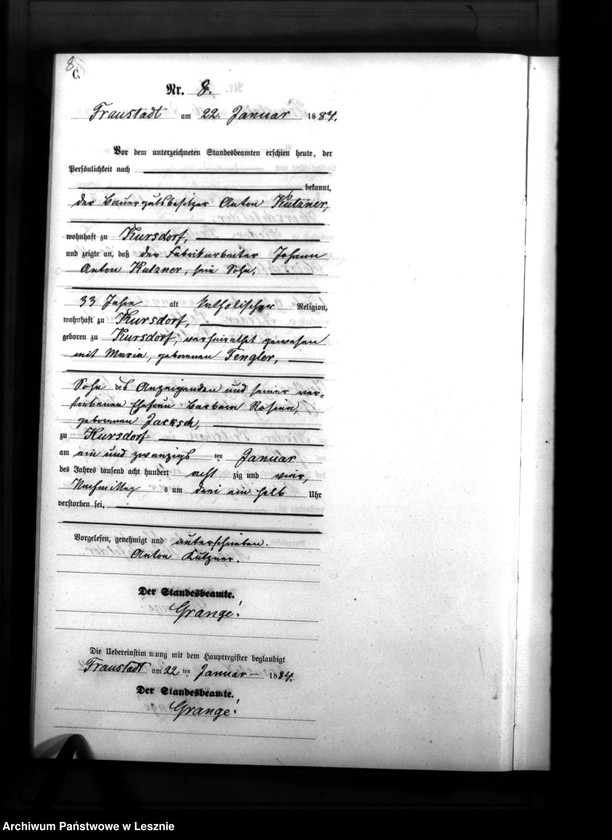 8.
C.
Nr. 8.
Fraustadt am 22. Januar 1884.
Vor dem unterzeichneten Standesbeamten erschien heute, der
Persönlichkeit nach
bekannt,
der Bauergutsbesitzer Anton Kutzner,
wohnhaft zu Kursdorf,
und zeigte an, daß der Fabrikarbeiter Johann
Anton Kutzner, sein Sohn,
33 Jahre alt katholischer Religion,
wohnhaft zu Kursdorf,
geboren zu Kursdorf, verheirathet gewesen
mit Maria, geborenen Tengler,
Sohn des Anzeigenden und seiner ver-
storbenen Ehefrau Barbara Rosina,
geborenen Jacksch,
zu Kursdorf
am ein und zwanzigsten Januar
des Jahres tausend acht hundert acht zig und vier,
Nachmittags um drei ein halb Uhr
verstorben sei.
Vorgelesen, genehmigt und unterschrieben.
Anton Kutzner.
Der Standesbeamte.
Grangé!
Die Uebereinstimmung mit dem Hauptregister beglaubigt
Fraustadt am 22 ten Januar 1884.
Der Standesbeamte.
Grangé!
Archiwum Państwowe w Lesznie